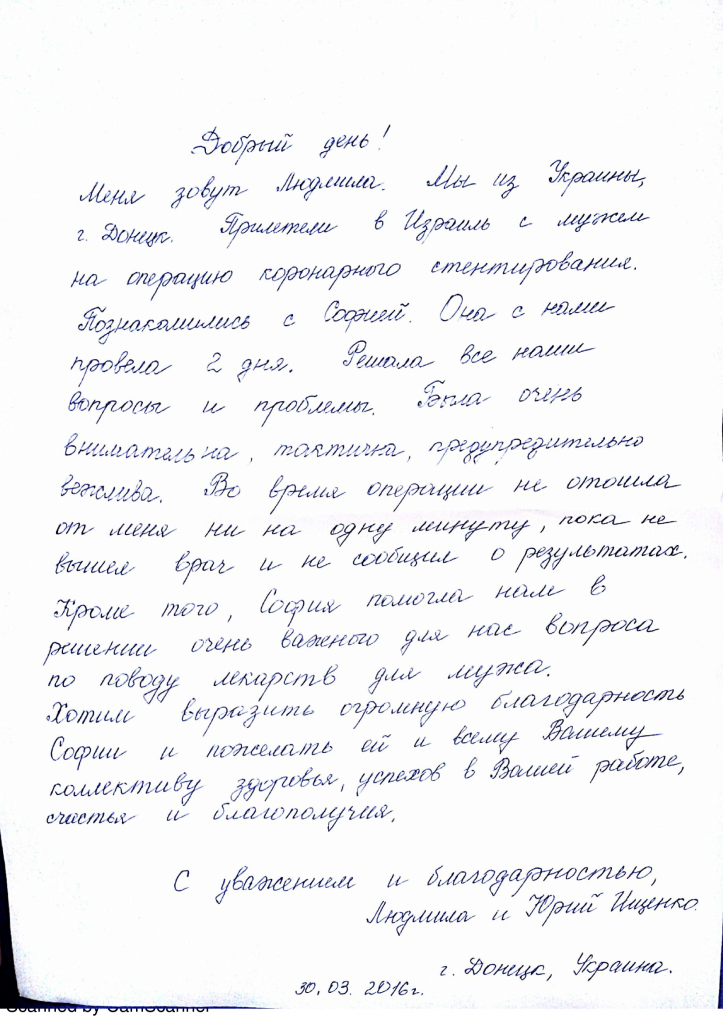 Добрый день!
Меня зовут Людмила. Мы из Украины,
г. Донецк. Прилетели в Израиль с мужем
на операцию коронарного стентирования.
Познакомились с Софией. Она с нами
провела 2 дня. Решала все наши
вопросы и проблемы. Была очень
внимательна, тактична, предупредительно
вежлива. Во время операции не отошла
от меня ни на одну минуту, пока не
вышел врач и не сообщил о результатах.
Кроме того, София помогла нам в
решении очень важного для нас вопроса
по поводу лекарств для мужа.
Хотим выразить огромную благодарность
Софии и пожелать ей и всему Вашему
коллективу здоровья, успехов в Вашей работе,
счастья и благополучия.
С уважением и благодарностью,
Людмила и Юрий Ищенко.
г. Донецк, Украина.
30.03.2016г.
Scanned by CamScanner